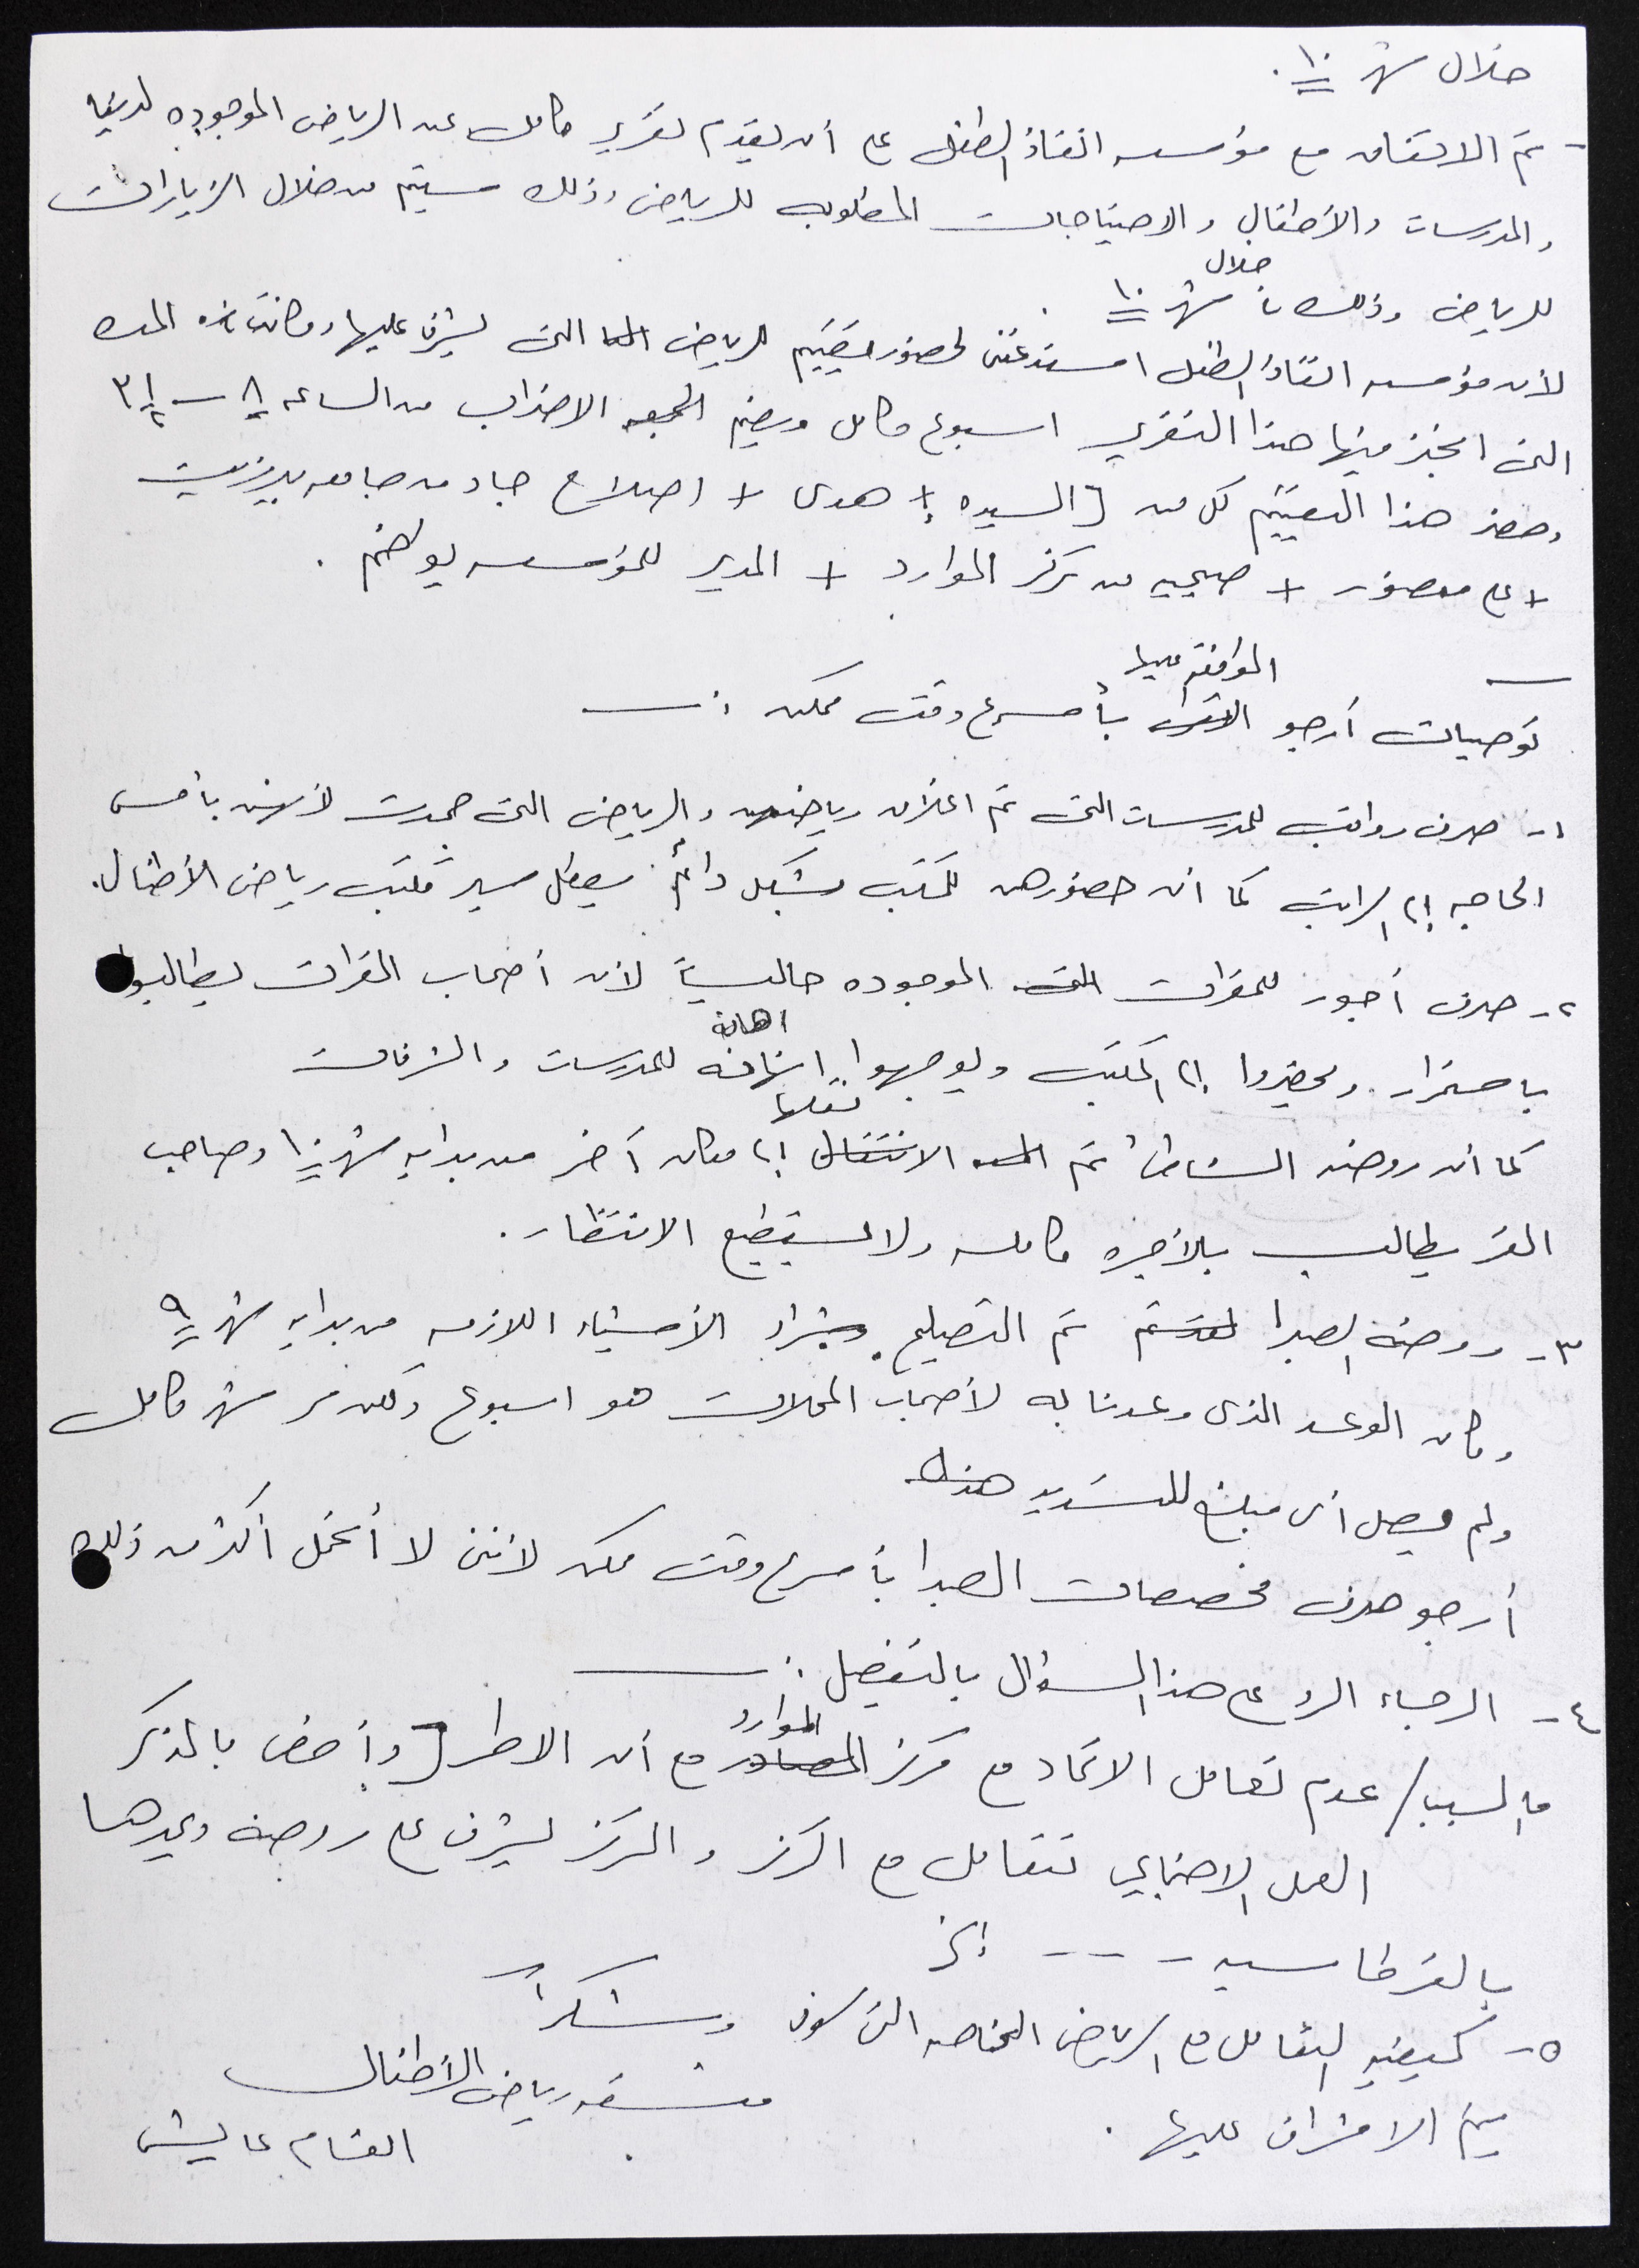 خلال شهر ١٠.
- تم الاتفاق مع مؤسسه انقاذ الطفل على أن يقدم تقرير كامل عن الرياض الموجوده لدينا
والمدرسات والأطفال والاحتياجات المطلوبه للرياض وذلك سيتم من خلال الزيارات
للرياض وذلك خلال شهر ١٠.
لأن مؤسسه انقاذ الطفل استدعتنى لحضور تقييم للرياض التى يشرف عليها وكانت المده
التى انجز فيها هذا التقرير اسبوع كامل ويضم الجمعه الاضراب من الساعه ٨ - ٣ ١/٢
وحضر هذا التقييم كل من [السيده + هدى + اصلاح جاد من جامعه بيرزيت
+ على منصور + صبحيه من مركز الموارد + المدير للمؤسسه بولضم.
توصيات أرجو الموافقه عليها بأسرع وقت ممكن :-
١- صرف رواتب للمدرسات التى تم اغلاق رياضهن والرياض التى جمدت لأنهن بأمس
الحاجه إلى الراتب كما ان حضورهن للمكتب بشكل دائم يعطل سير مكتب رياض الأطفال.
٢- صرف أجور للمقرات الموجوده حالياً لأن أصحاب المقرات يطالبوا
باستمرار ويحضروا إلى المكتب ويوجهوا اهانه للمدرسات والمشرفات
كما ان روضه الشاطئ تم نقلها إلى مكان آخر من بدايه شهر ١٠ وصاحب
المقر يطالب بالأجره كامله ولا يستطيع الانتظار.
٣- روضة الصبرا تم التصليح وشراء الأشياء اللازمه من بدايه شهر ٩
وكان الوعد الذى وعدنا به لأصحاب المحلات هو اسبوع ولكن مر شهر كامل
ولم يصل أى مبلغ للتسديد
أرجو صرف مخصصات الصبرا بأسرع وقت ممكن لأننى لا أتحمل أكثر من ذلك
٤- الرجاء الرد على هذا السؤال بالتفصيل :-
ما السبب / عدم تعامل الاتحاد مع مركز الموارد مع أن الاطر [وأخص بالذكر
العمل الاجتماعي تتعامل مع المركز والمركز يشرف على روضة ويمدها
بالقرطاسيه --- إلخ
٥- كيفيه التعامل مع الرياض الخاصه التى سوف
يتم الاشراف عليها.
وشكراً
منسقه رياض الأطفال
انعام عايش